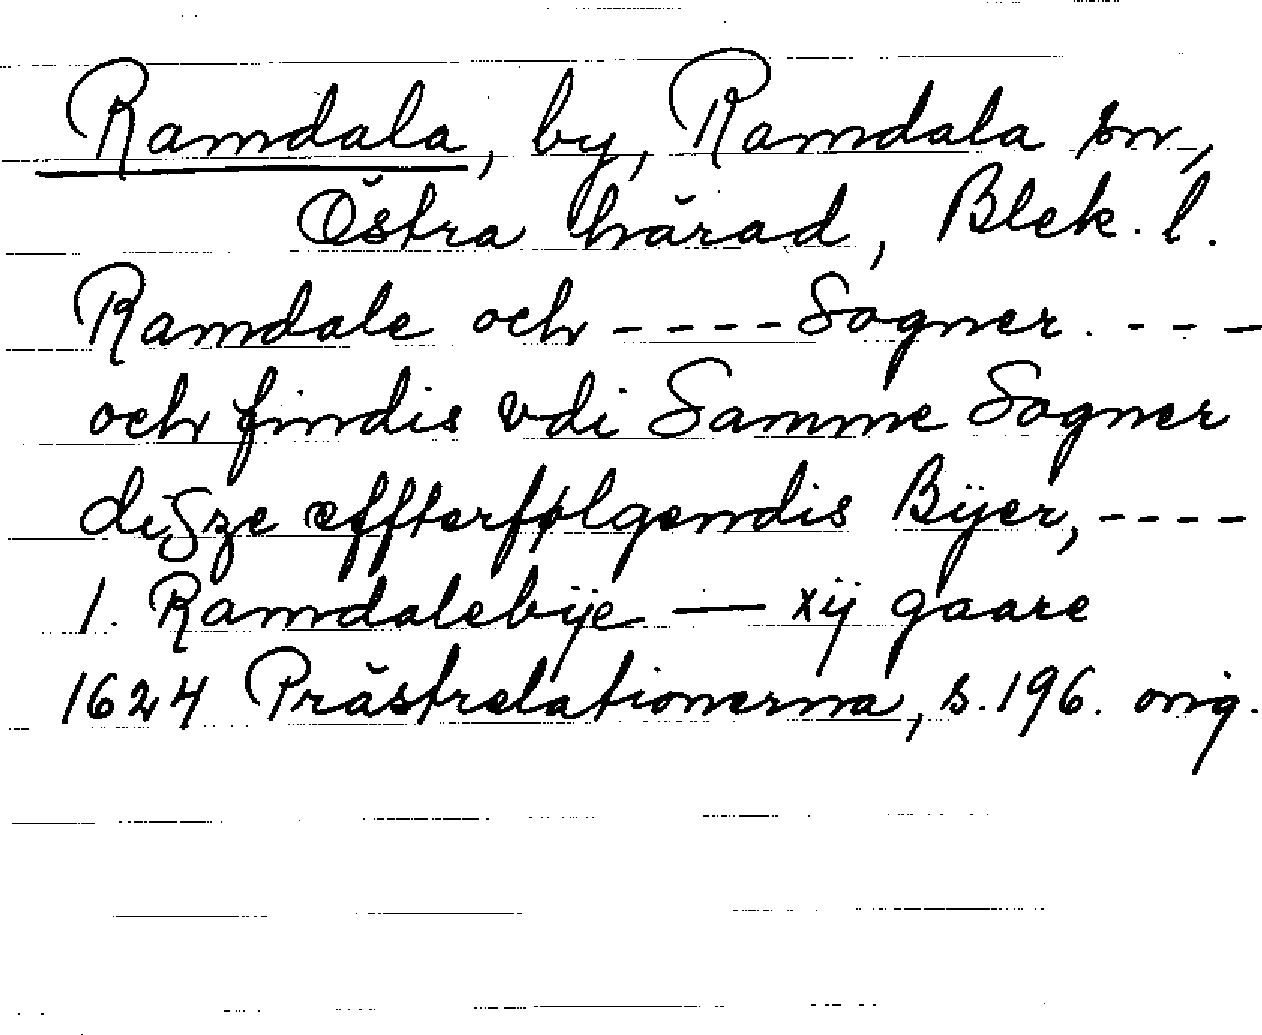 Ramdala, by, Ramdala sn,
Östra härad, Blek. l.
Ramdale och ---- Sogner. ---
och findis vdi Samme Sogner
disze effterfølgendis Bÿer, ----
1. Ramdalebÿe — xÿ gaare
1624 Prästrelationerna, s. 196. orig.